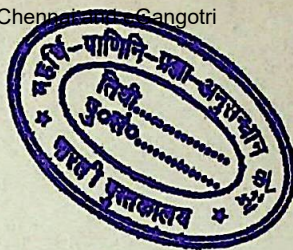 Chennai and eGangotri
महर्षि-पाणिनि-प्रज्ञा-अनुसन्धान
तिथी............
पु०सं०............
पुस्तकालय